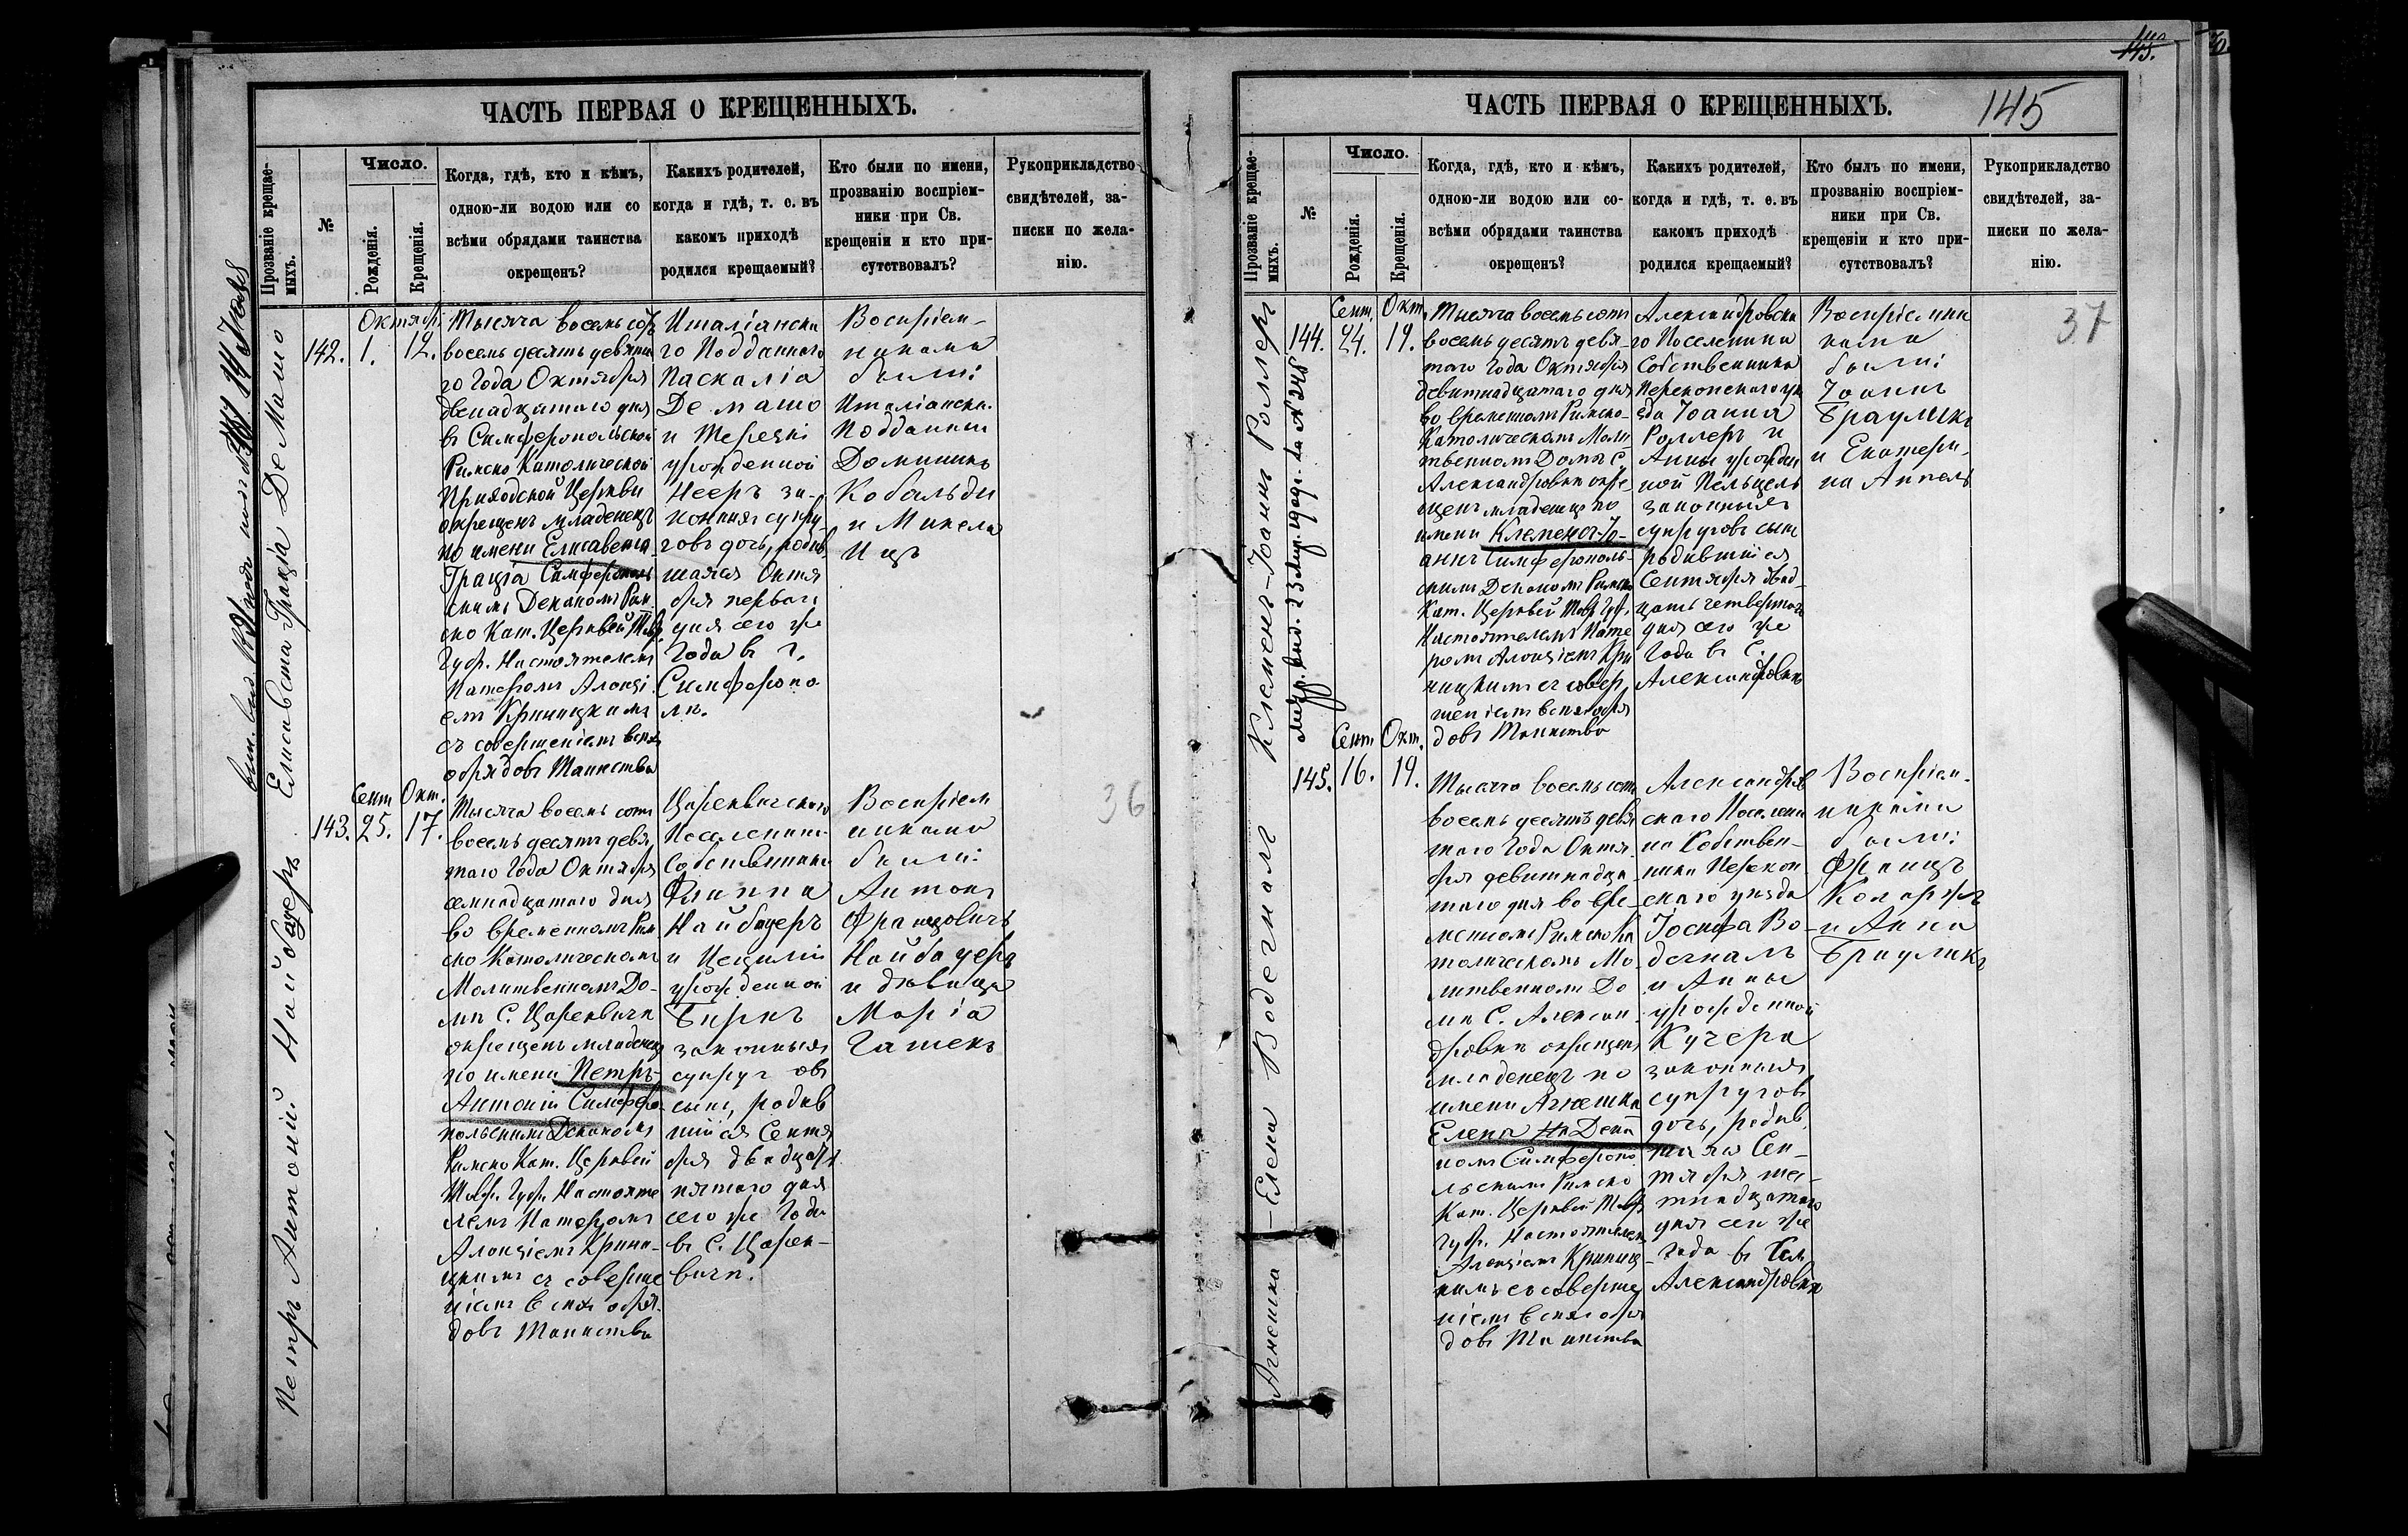 ЧАСТЬ ПЕРВАЯ О КРЕЩЕННЫХЪ.
Прозваніе крещае-
мыхъ.
№
Число.
Рожденія.
Крещенія.
Когда, гдѣ, кто и кѣмъ,
одною-ли водою или со
всѣми обрядами таинства
окрещенъ?
Какихъ родителей,
когда и гдѣ, т. е. въ
какомъ приходѣ
родился крещаемый?
Кто были по имени,
прозванію воспріем-
ники при Св.
крещеніи и кто при-
сутствовалъ?
Рукоприкладство
свидѣтелей, за-
писки по жела-
нію.
Елисавета Грація
142.
Октября
1.
12.
Тысяча восемьсотъ
восемьдесятъ девята
го Года Октября
двенадцатаго дня
въ Симферопольской
Римско Католической
Приходской Церкви
окрещенъ младенецъ
по имени Елисавета
Грація Симферополь
скимъ Деканомъ Рим
ско Кат. Церквей Тавр.
Губ. Настоятелемъ
Патеромъ Алоизі
емъ Криницкимъ
съ совершеніемъ всѣхъ
обрядовъ Таинства
Италіанска
го Подданнаго
Паскаліа
и Терезіи
урожденной
Нееръ за-
конныхъ супру
говъ дочь, родив
шаяся Октя
бря перваго
дня сего же
Года въ г.
Симферопо
лѣ.
Воспріем-
никами
были:
Италіанск.
Подданный
Доминикъ
Кобальди
и Микела
Петръ Антоній Найбауеръ
143.
Сент.
25.
Окт.
17.
Тысяча восемь сотъ
восемь десятъ девя
таго Года Октября
семнадцатаго дня
во временномъ Рим
ско Католическомъ
Молитвенномъ До-
мѣ С. Царевича
окрещенъ младенецъ
по имени Петръ-
Антоній Симферо
польскимъ Деканомъ
Римско Кат. Церквей
Тавр. Губ. Настояте
лемъ Патеромъ
Алоизіемъ Крини-
цкимъ съ соверше
ніемъ всѣхъ обря-
довъ Таинства
Царевичскаго
Поселянина
Собственника
Филиппа
Найбауеръ
и Цециліи
урожденной
Биркъ
законныхъ
супруг овъ
сынъ, родив
шійся Сентя
бря двадцать
пятаго дня
сего же Года
въ С. Царе-
вичѣ.
Воспріем
никами
были:
Антонъ
Францовичъ
Найбауеръ
и дѣвица
Марія
Гашекъ
36
ЧАСТЬ ПЕРВАЯ О КРЕЩЕННЫХЪ.
145
Прозваніе крещае-
мыхъ.
№
Число.
Рожденія.
Крещенія.
Когда, гдѣ, кто и кѣмъ,
одною-ли водою или со-
всѣми обрядами таинства
окрещенъ?
Какихъ родителей,
когда и гдѣ, т. е. въ
какомъ приходѣ
родился крещаемый?
Кто былъ по имени,
прозванію воспріем-
ники при Св.
крещеніи и кто при-
сутствовалъ?
Рукоприкладство
свидѣтелей, за-
писки по жела-
нію.
Клеменъ-Іоаннъ Роллеръ
144.
Сент.
24.
Окт.
19.
Тысяча восемьсотъ
восемь десятъ девя-
таго Года Октября
девятнадцатаго дня
во временномъ Римско-
Католическомъ Моли
твенномъ Домѣ С.
Александровки окре-
щенъ младенецъ по
имени Клеменсъ-Іо-
аннъ Симферополь-
скимъ Деканомъ Римско
Кат. Церквей Тавр. Губ.
Настоятелемъ Пате
ромъ Алоизіемъ Кри
ницкимъ съ совер
шеніемъ всѣхъ обря
довъ Таинства
Александровска
го Поселянина
Собственника
Перекопскаго уѣ
зда Іоанна
Роллеръ и
Анны урожден
ной Пельцель
законныхъ
супруговъ сынъ
родившійся
Сентября двад-
цать четвертаго
дня сего же
Года въ С.
Александровкѣ
Воспріемни
ками
были:
Іоаннъ
Брауликъ
и Екатери-
на Аппель
37
Агнешка-Елена Водегналъ
145.
Сент.
16.
Окт.
19.
Тысяча восемь сотъ
восемь десятъ девя
таго Года Октя
бря девятнадца
таго дня во вре-
менномъ Римско Ка
толическомъ Мо-
литвенномъ До
мѣ С. Алексан-
дровки окрещенъ
младенецъ по
имени Агнешка
Елена Дека
номъ Симферопо
льскимъ Римско
Кат. Церквей Тавр.
Губ. Настоятелемъ
Алоизіемъ Криниц-
кимъ съ соверше
ніемъ всѣхъ обря
довъ Таинства
Александров
скаго Поселяни
на Собствен-
ника Перекоп
скаго уѣзда
Іосифа Во-
дегналъ
и Анны
урожденной
Кучера
законныхъ
супруговъ
дочь, родив
шаяся Сен-
тября шес-
тнадцатаго
дня сего же
Года въ Сел.
Александровкѣ
Воспріем-
никами
были:
Францъ
Коларжъ
и Анна
Брауликъ